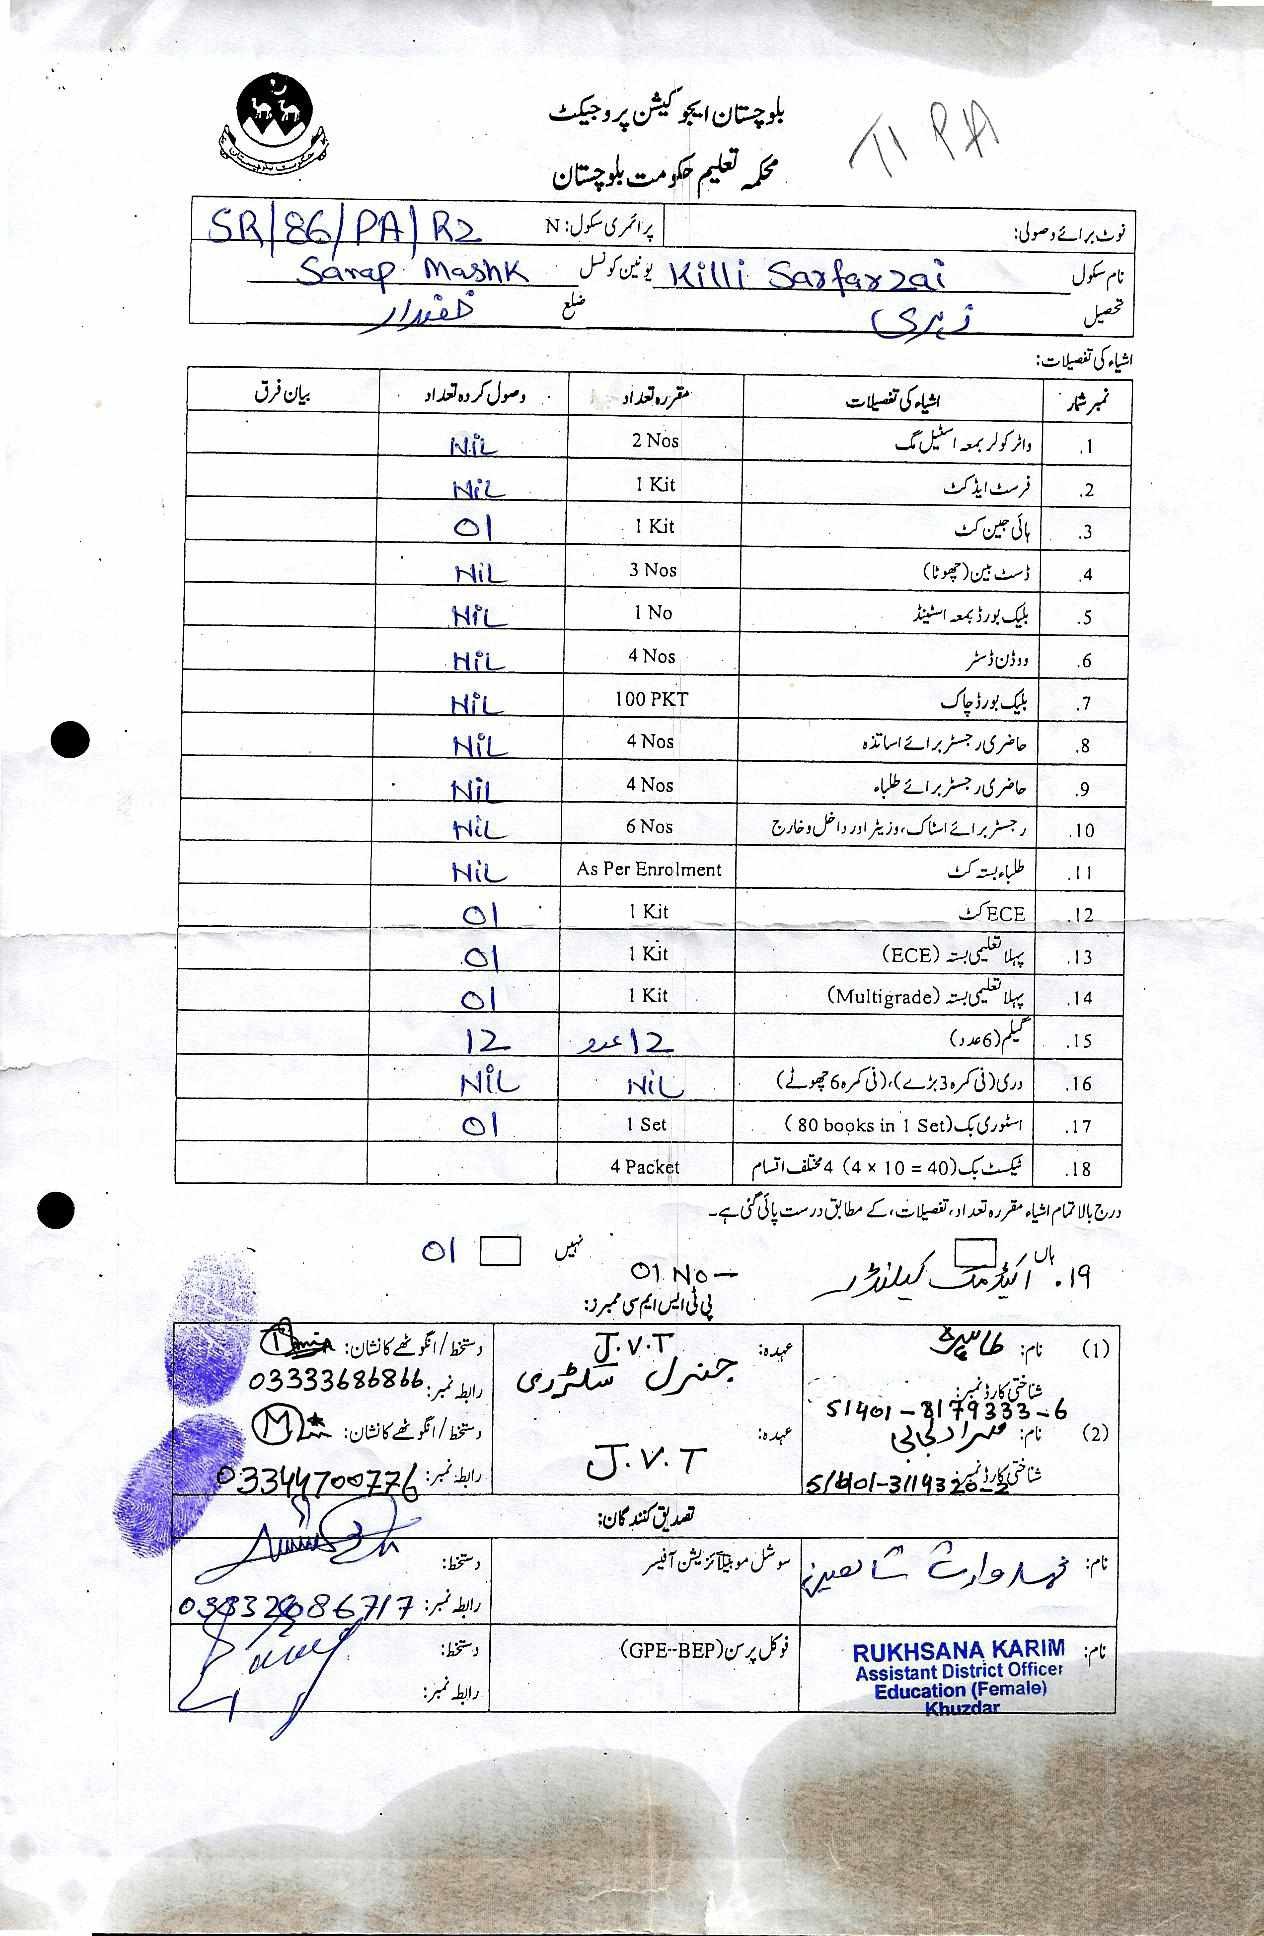 بلوچستان ایجوکیشن پروجیکٹ
محکمہ تعلیم حکومت بلوچستان
حکومت بلوچستان
T1 PA
نوٹ برائے وصولی: پرائمری سکول: N SR/86/PA/R2
نام سکول Killi Sarfarzai یونین کونسل Sarap Mashk
تحصیل زہری ضلع خضدار
اشیاء کی تفصیلات:
نمبر شمار اشیاء کی تفصیلات مقررہ تعداد وصول کردہ تعداد بیان فرق
1. واٹر کولر بمعہ اسٹیل مگ 2 Nos NiL
2. فرسٹ ایڈ کٹ 1 Kit NiL
3. ہائی جین کٹ 1 Kit 01
4. ڈسٹ بین (چھوٹا) 3 Nos NiL
5. بلیک بورڈ بمعہ اسٹینڈ 1 No NiL
6. ووڈن ڈسٹر 4 Nos NiL
7. بلیک بورڈ چاک 100 PKT NiL
8. حاضری رجسٹر برائے اساتذہ 4 Nos NiL
9. حاضری رجسٹر برائے طلباء 4 Nos NiL
10. رجسٹر برائے اسٹاک، وزیٹر اور داخل و خارج 6 Nos NiL
11. طلباء بستہ کٹ As Per Enrolment NiL
12. ECE کٹ 1 Kit 01
13. پہلا تعلیمی بستہ (ECE) 1 Kit 01
14. پہلا تعلیمی بستہ (Multigrade) 1 Kit 01
15. گیلم (6 عدد) 12 عدد 12
16. دری (فی کمرہ 3 بڑے)، (فی کمرہ 6 چھوٹے) NiL NiL
17. اسٹوری بک (80 books in 1 Set) 1 Set 01
18. ٹیکسٹ بک (4 × 10 = 40) 4 مختلف اقسام 4 Packet
درج بالا تمام اشیاء مقررہ تعداد، تفصیلات، کے مطابق درست پائی گئی ہے۔
ہاں نہیں 01
19. اکیڈمک کیلنڈر 01 No
پی ٹی ایس ایم سی ممبرز:
(1) نام: طاہرہ عہدہ: J.V.T جنرل سکٹرری دستخط/انگوٹھے کا نشان:
شناختی کارڈ نمبر: 51401-8179333-6 رابطہ نمبر: 03333686866
(2) نام: مراد بی بی عہدہ: J.V.T دستخط/انگوٹھے کا نشان:
شناختی کارڈ نمبر: 51401-3119320-2 رابطہ نمبر: 03344700776
تصدیق کنندگان:
نام: وارث شاهین سوشل موبیلائزیشن آفیسر دستخط:
رابطہ نمبر:
نام: RUKHSANA KARIM فوکل پرسن (GPE--BEP) دستخط:
Assistant District Officer
Education (Female) رابطہ نمبر:
Khuzdar